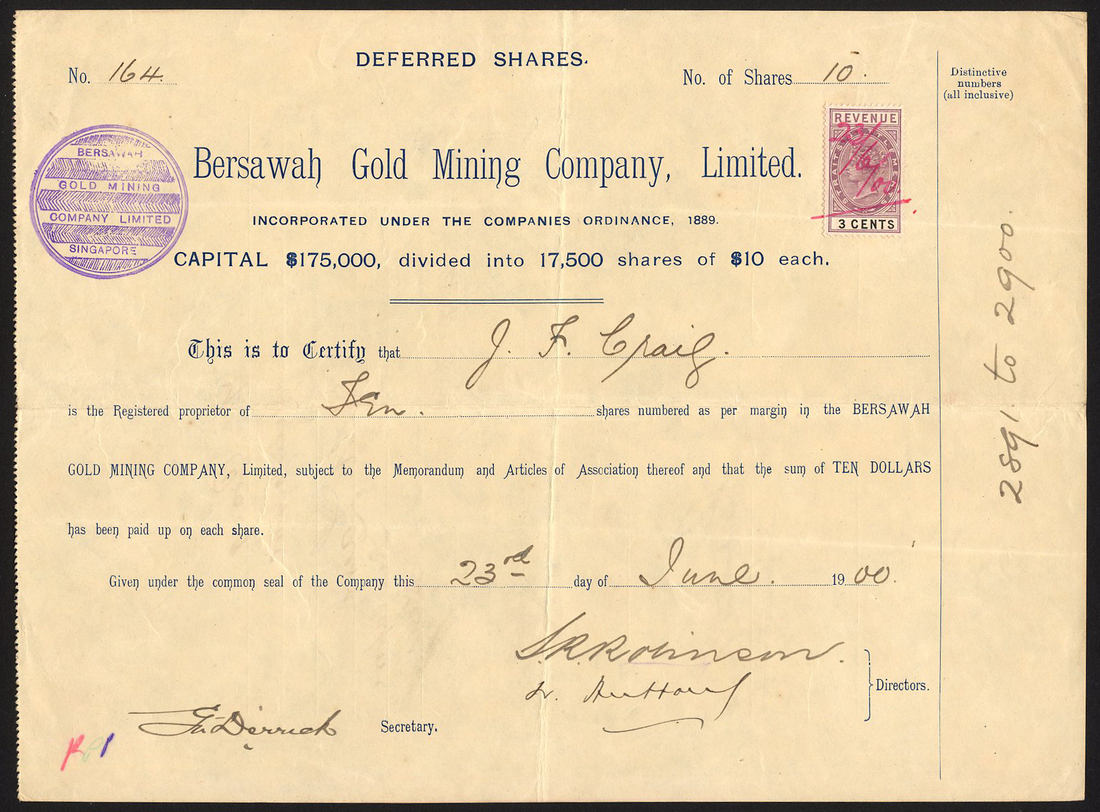 DEFERRED SHARES.
No. 164.
No. of Shares 10
Distinctive
numbers
(all inclusive)
REVENUE
23/6/00
3 CENTS
BERSAWAH
GOLD MINING
COMPANY LIMITED
SINGAPORE
Bersawah Gold Mining Company, Limited.
INCORPORATED UNDER THE COMPANIES ORDINANCE, 1889.
CAPITAL $175,000, divided into 17,500 shares of $10 each.
This is to Certify that J. F. Craig.
is the Registered proprietor of Ten. shares numbered as per margin in the BERSAWAH
GOLD MINING COMPANY, Limited, subject to the Memorandum and Articles of Association thereof and that the sum of TEN DOLLARS
has been paid up on each share.
Given under the common seal of the Company this 23rd day of June. 1900.
2891 to 2900.
S.R. Robinson.
Directors.
Derrick
Secretary.